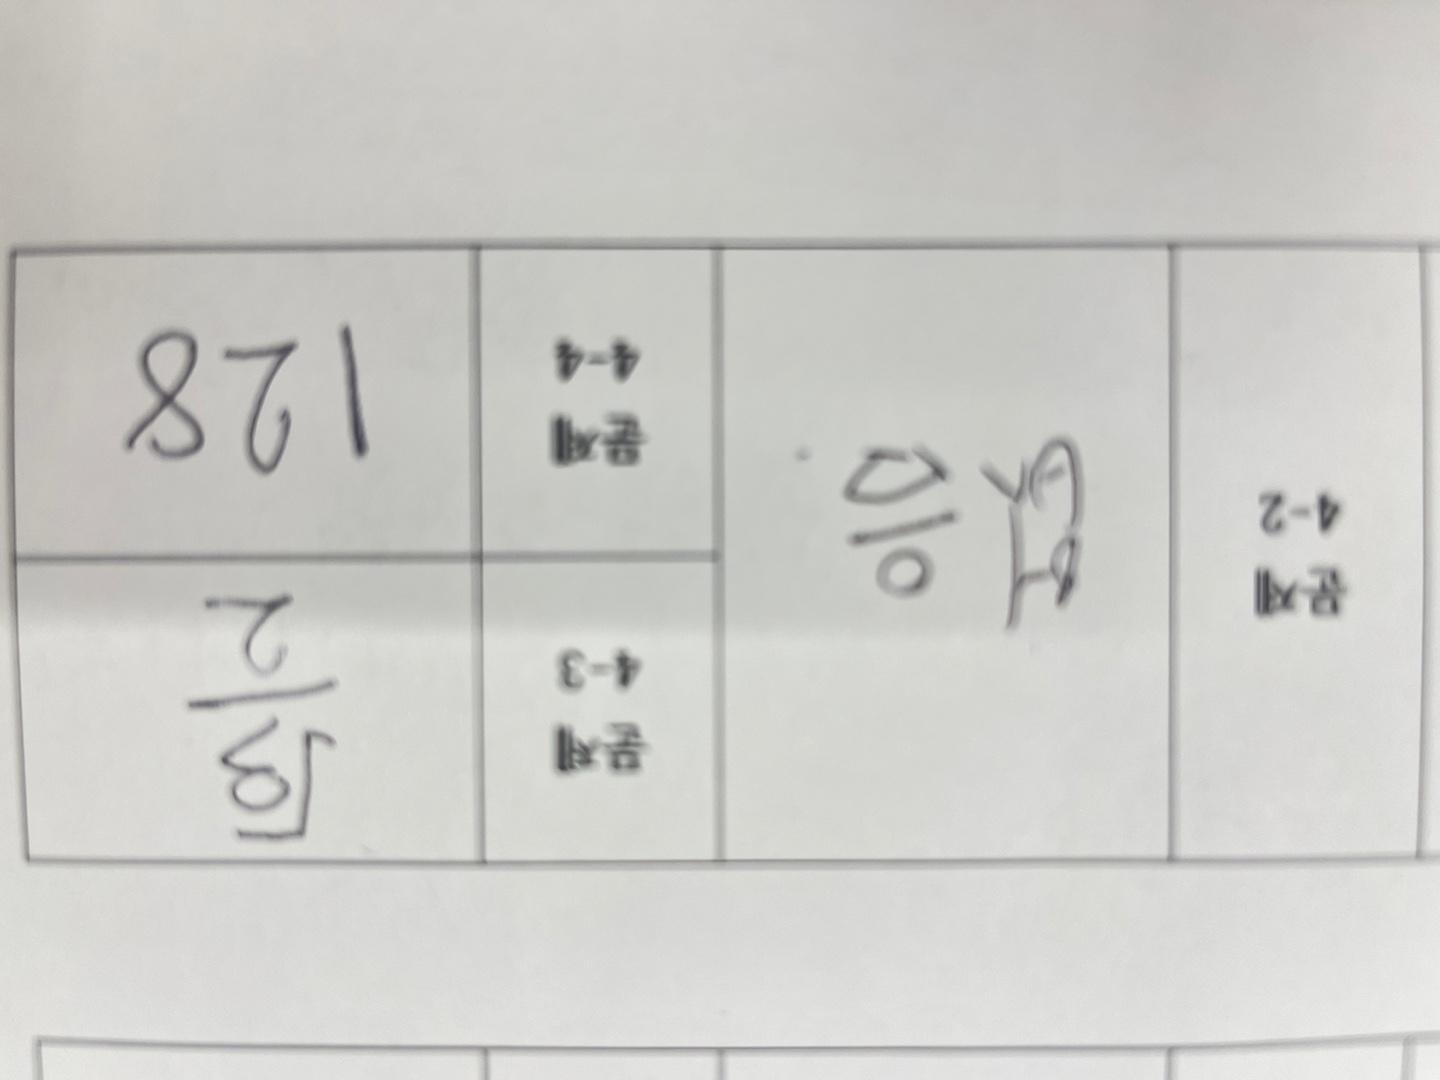 문제
4-2
없음
문제
4-3
문제
4-4
128